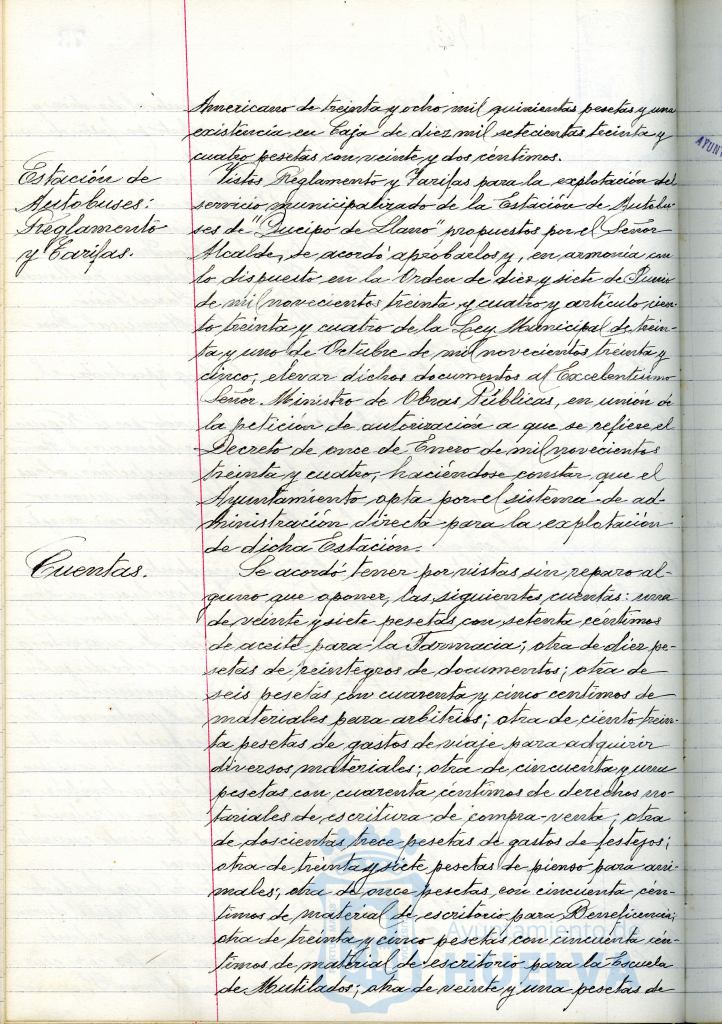 Americano de treinta y ocho mil quinientas pesetas y una
existencia en Caja de diez mil setecientas treinta y
cuatro pesetas con veinte y dos céntimos.
Estación de
Autobuses:
Reglamento
y Tarifas.
Vistos Reglamento y Tarifas para la explotación del
servicio municipalizado de la Estación de Autobu-
ses de "Queipo de Llano" propuestos por el Señor
Alcalde, se acordó aprobarlos y, en armonía con
lo dispuesto en la Orden de diez y siete de Junio
de mil novecientos treinta y cuatro y artículo cien-
to treinta y cuatro de la Ley Municipal de trein-
ta y uno de Octubre de mil novecientos treinta y
cinco, elevar dichos documentos al Excelentísimo
Señor Ministro de Obras Públicas, en unión de
la petición de autorización a que se refiere el
Decreto de once de Enero de mil novecientos
treinta y cuatro, haciéndose constar que el
Ayuntamiento opta por el sistema de ad-
ministración directa para la explotación
de dicha Estación.
Cuentas.
Se acordó tener por vistas sin reparo al-
guno que oponer, las siguientes cuentas: una
de veinte y siete pesetas con setenta céntimos
de aceite para la Farmacia; otra de diez pe-
setas de reintegros de documentos; otra de
seis pesetas con cuarenta y cinco centimos de
materiales para arbitrios; otra de ciento trein-
ta pesetas de gastos de viaje para adquirir
diversos materiales; otra de cincuenta y una
pesetas con cuarenta centimos de derechos no-
tariales de escritura de compra-venta; otra
de doscientas trece pesetas de gastos de festejos;
otra de treinta y siete pesetas de pienso para ani-
males; otra de once pesetas con cincuenta cén-
timos de material de escritorio para Beneficencia;
otra de treinta y cinco pesetas con cincuenta cén-
timos de material de escritorio para la Escuela
de Mutilados; otra de veinte y una pesetas de
AYUN
Ayuntamiento de
HUELVA